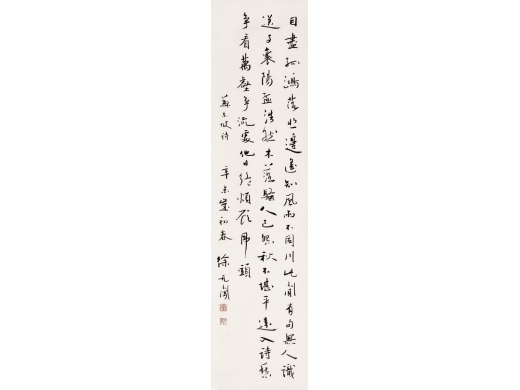 目盡孤鴻落照邊遙知風雨不同川此間有句無人識
送与襄陽孟浩然木落騷人已怨秋不堪平遠入詩愁
爭看萬壑爭流處他日終煩顧虎頭
蘇東坡詩 辛未歲初春 徐无聞